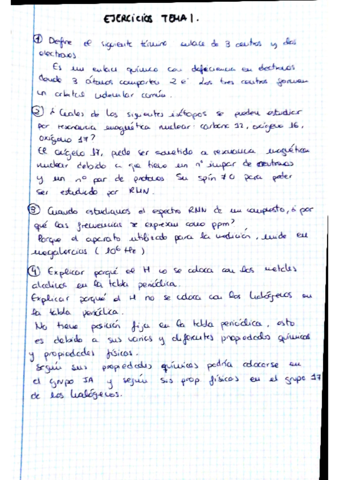 EJERCICIOS TEMA 1.
① Define el siguiente término enlace de 3 centros y dos
electrones
Es un enlace químico con deficiencia en electrones
donde 3 átomos comparten 2 e⁻. Los tres centros forman
un orbital molecular común.
② ¿Cuales de los siguientes isótopos se pueden estudiar
por resonancia magnética nuclear: carbono 12, oxígeno 16,
oxígeno 17?
El oxígeno 17, puede ser sometido a resonancia magnética
nuclear debido a que tiene un nº impar de electrones
y un nº par de protones. Su spin ≠ 0 para poder
ser estudiado por RMN.
③ Cuando estudiamos el espectro RMN de un compuesto, ¿por
qué las frecuencias se expresan como ppm?
Porque el aparato utilizado para la medición, mide en
megahercios (10⁶ Hz).
④ Explicar porqué el H no se coloca con los metales
alcalinos en la tabla periódica.
Explicar porqué el H no se coloca con los halógenos en
la tabla periódica.
No tiene posición fija en la tabla periódica, esto
es debido a sus varias y diferentes propiedades químicas
y propiedades físicas.
Según sus propiedades químicas podría colocarse en
el grupo IA y según sus prop físicas en el grupo 17
de los halógenos.